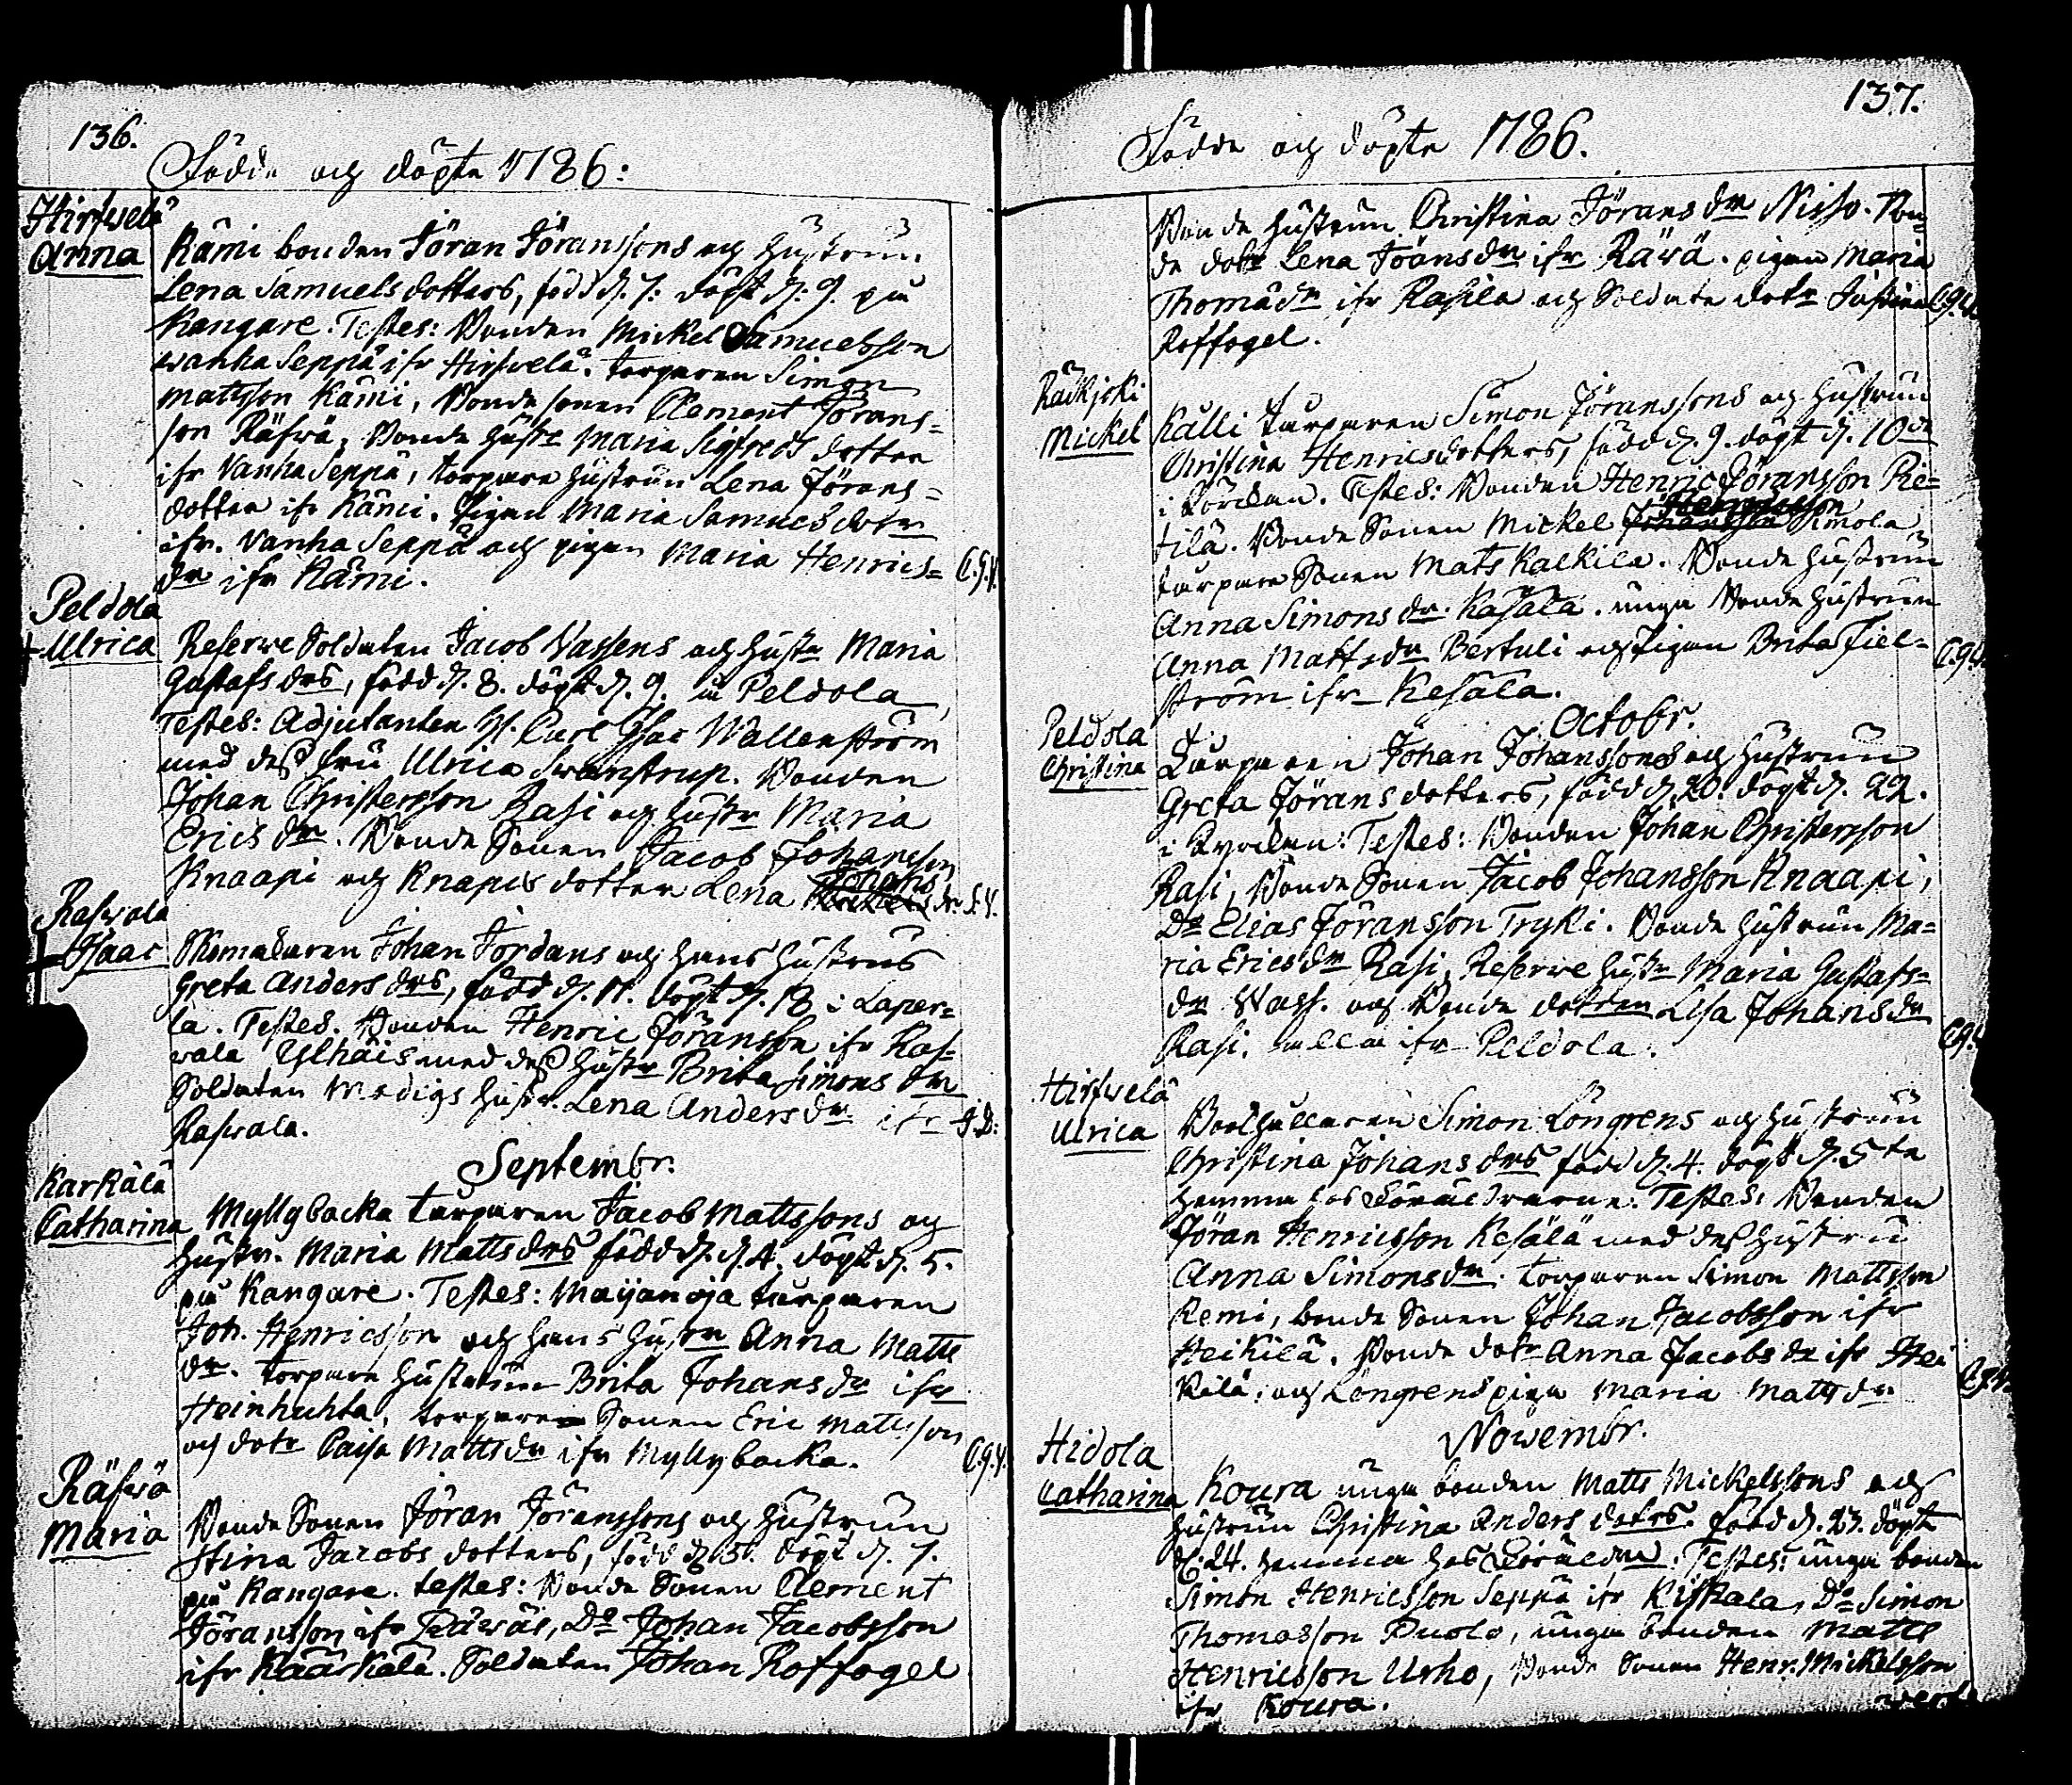 136.
Födde och döpte 1786:
Hirfwelä
Anna
Kämi bonden Jöran Jöranssons och hustrun
Lena Samuels dotters, född d. 7. döpt d. 9. på
Kangare. Testes: Bonden Mickel Samuelsson
Wanha Seppä ifr Hirfvelä. torparen Simon
Mattsson Kämi, Bonde sonen Clement Jörans=
son Räfwä, Bonde hustr Maria Sigfreds dotter
ifr Vanha Seppä, torpare hustrun Lena Jörans=
dotter ifr Kämi. Pigan Maria Samuels dotr
ifr. Vanha Seppä och pigan Maria Henrics=
dr ifr Kämi.
C.G.V.
Peldola
+ Ulrica
Reserwe Soldaten Jacob Wassens och hustr Maria
Gustafs drs, född d. 8. döpt d. 9. i Peldola,
Testes: Adjutanten H. Carl Isac Wallenström
med dess fru Ulrica Swanstrup. Bonden
Johan Christersson Rasi och hustr Maria
Erics dr. Bonde Sonen Jacob Johansson
Knaapi och Knapis dotter Lena Johans dr
Raswala
+ Isaac
Johan Jordans och hans hustrus
Greta Anders drs, född d. 17. döpt d. 18 i Laper=
la. Testes. Bonden Henric Jöransson ifr Ras=
vala Ylhäis med dess hustr Brita Simons dr
Soldaten Modigs hustr. Lena Anders dr ifr
Raswala.
J.D:
Septembr.
Karkälä
Catharina
Myllybacka torparen Jacob Mattssons och
hustr. Maria Matts drs född d. 4. döpt d. 5.
på Kangare. Testes: Maijanoja torparen
Joh. Henricsson och hans hustru Anna Matts
dr. torpare hustrun Brita Johans dr ifr
Heinhuhta, torpare Sonen Eric Mattsson
och dotr Caisa Matts dr ifr Myllybacka.
C.G.V.
Räfwä
Maria
Bonde Sonen Jöran Jöranssons och hustrun
Stina Jacobs dotters, född d. 5. döpt d. 7.
på Kangare. testes: Bonde Sonen Clement
Jöransson ifr Räwäs, Do Johan Jacobsson
ifr Käärkälä. Soldaten Johan Roffogel
137.
Födde och döpte 1786.
Bonde hustrun Christina Jörans dr Nisso. Bon=
de dotr Lena Jöransdr ifr Räwä. pigan Maria
Thomä dr ifr Rasila och Soldate dotr Justina
Roffogel.
C.G.V.
Rädkjoki
Mickel
Kalli torparen Simon Jöranssons och hustrun
Christina Henricsdotters, född d. 9. döpt d. 10de
i Kördlan. Testes: Bonden Henric Jöransson Rie=
tilä. Bonde Sonen Mickel Henricsson Simola
torpare Sonen Mats Kalkila. Bonde hustrun
Anna Simons dr. Kasälä. unga Bonde hustrun
Anna Matts dr Bertuli och Pigan Brita Fiel=
ström ifr Kesälä.
C.G.V.
Octobr.
Peldola
Christina
Torparen Johan Johanssons och hustrun
Greta Jörans dotters, född d. 20. döpt d. 22.
i Kyrckan: Testes: Bonden Johan Christersson
Rasi, Bonde Sonen Jacob Johansson Knaapi,
Do Elias Jöransson Tryki. Bonde hustrun Ma=
ria Erics dr Rasi, Reserwe hustr Maria Gustafs=
dr Wass. och Bonde dottren Lisa Johans dr
Rasi. alla ifr Peldola.
Hirfwelä
Ulrica
Simon Löngrens och hustrun
Christina Johans drs född d. 4. döpt d. 5te
hemma hos Föräldrarne: Testes: Bonden
Jöran Henricsson Kesälä med dess hustru
Anna Simons dr. torparen Simon Mattsson
Remi, bonde Sonen Johan Jacobsson ifr
Heikilä. Bonde dotr Anna Jacobs dr ifr Hei
kilä: och Löngrens piga Maria Matts dr
Nowembr.
Hidola
Catharina
Koura unga bonden Matts Mickelssons och
hustrun Christina Anders dotrs. född d. 23. döpt
d. 24. hemma hos Föräldr. Testes: unga bonden
Simon Henricsson Seppä ifr Kiskala, Do Simon
Thomasson Puolo, unga bonden Matts
Henricsson Urho, Bonde Sonen Henr. Mickelsson
ifr Koura.